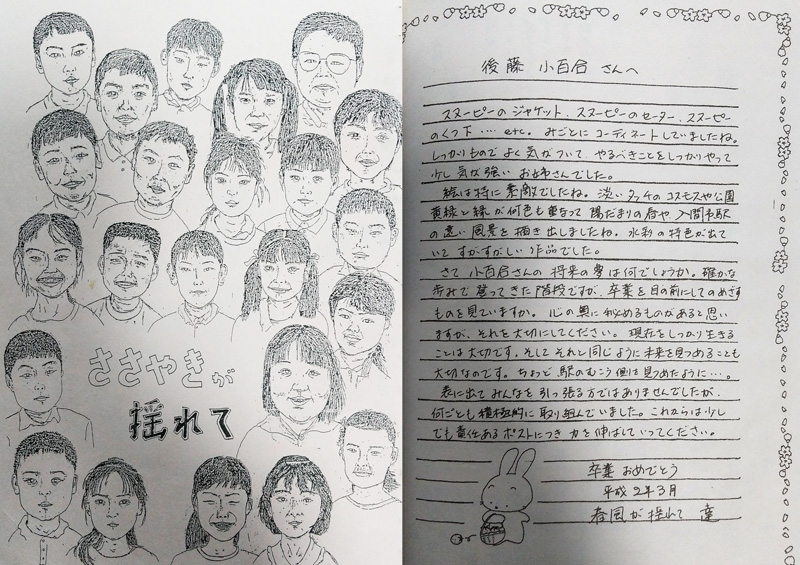 ささやきが
揺れて
後藤 小百合 さんへ
スヌーピーの ジャケット、スヌーピーの セーター、スヌーピー
のくつ下 ‥‥ etc. みごとに コーディネートしていましたね。
しっかりもので よく 気がついて、やるべきことをしっかりやって
少し 気が強い お姉さんでした。
絵は特に 素敵でしたね。淡いタッチの コスモスや公園
黄緑と緑が 何色も 重なって 陽だまりの
の遠い 風景を 描き出しましたね。水彩の特色が出て
いて すがすがしい 作品でした。
さて 小百合さんの 将来の夢は何でしょうか。確かな
歩みで 登ってきた 階段ですが、卒業を目の前にしてのめざす
ものを見ていますか。心の奥に 秘めるものがあると思い
ますが、それを大切にしてください。現在をしっかり生きる
ことは大切です。そして それと同じように未来を見つめることも
大切なのです。ちょっと 駅のむこう側を見つめたように‥‥。
表に出て みんなを 引っ張る方ではありませんでしたが、
何ごとも 積極的に 取り組んでいました。これからは少し
でも責任あるポストにつき 力を伸ばしていってください。
卒業 おめでとう
平成 2年 3月
春風が 揺れて 達